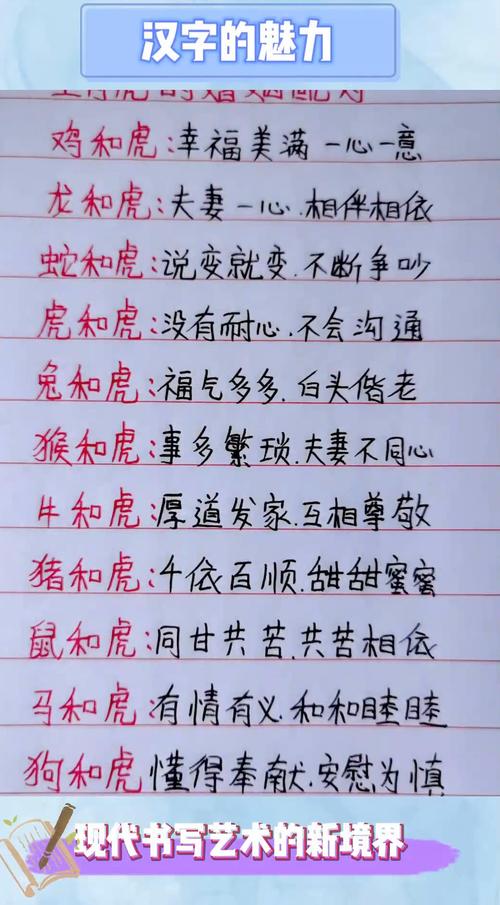 汉字的魅力
生肖虎的婚姻配对
鸡和虎:幸福美满 一心一意
龙和虎:夫妻一心.相伴相依
蛇和虎:说变就变.不断争吵
虎和虎:没有耐心.不会沟通
兔和虎:福气多多.白头偕老
猴和虎:事多繁琐.夫妻不同心
牛和虎:厚道发家.互相尊敬
猪和虎:千依百顺.甜甜蜜蜜
鼠和虎:同甘共苦.共苦相依
马和虎:有情有义.和和睦睦
狗和虎:懂得奉献.安慰为慎
现代书写艺术的新境界